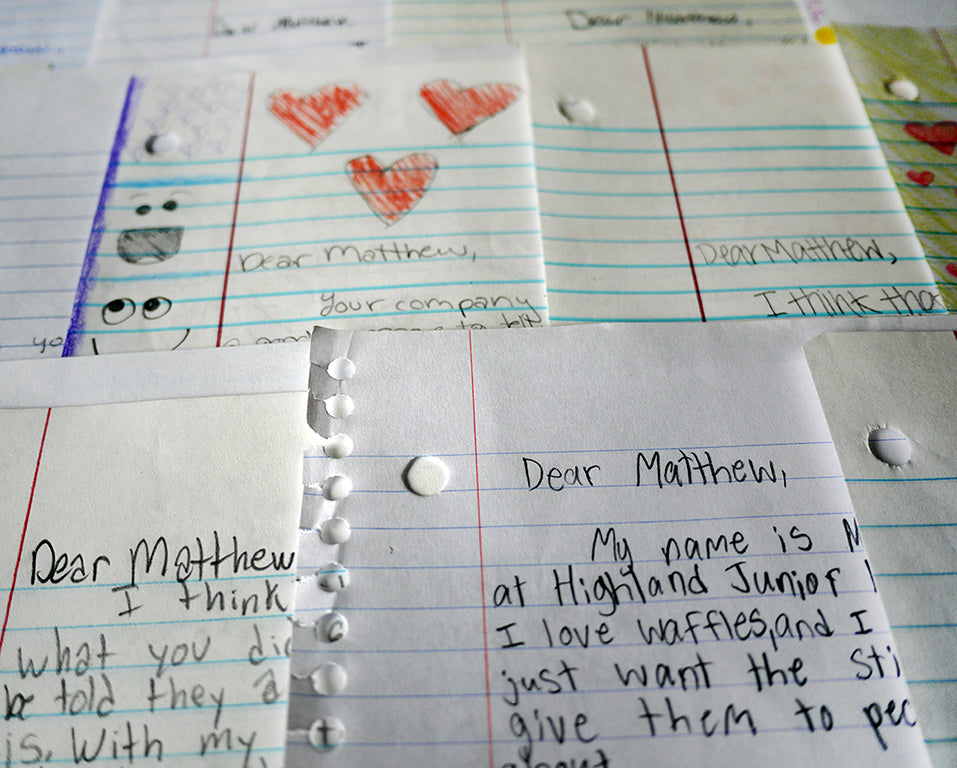 Dear Matthew,
Dear
Dear Matthew,
your company
to
Dear Matthew,
I think
yo
Dear Matthew
I think
what you di
be told they a
is. With my
Dear Matthew,
My name is M
at Highland Junior
I love waffles, and I
just want the sti
give them to pec
about